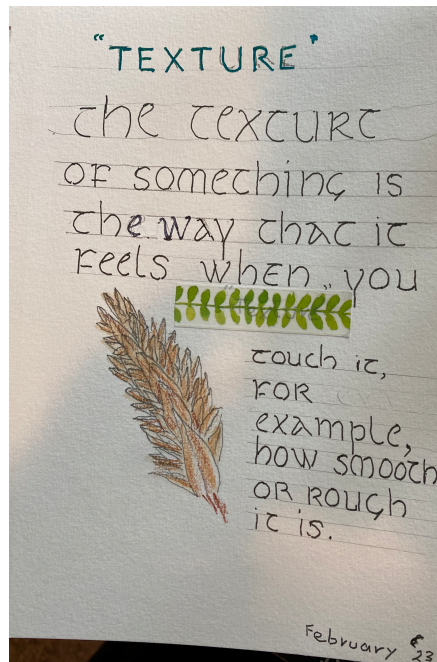 "TEXTURE"
the texture
of something is
the way that it
feels when you
touch it,
for
example,
how smooth
or rough
it is.
February '23